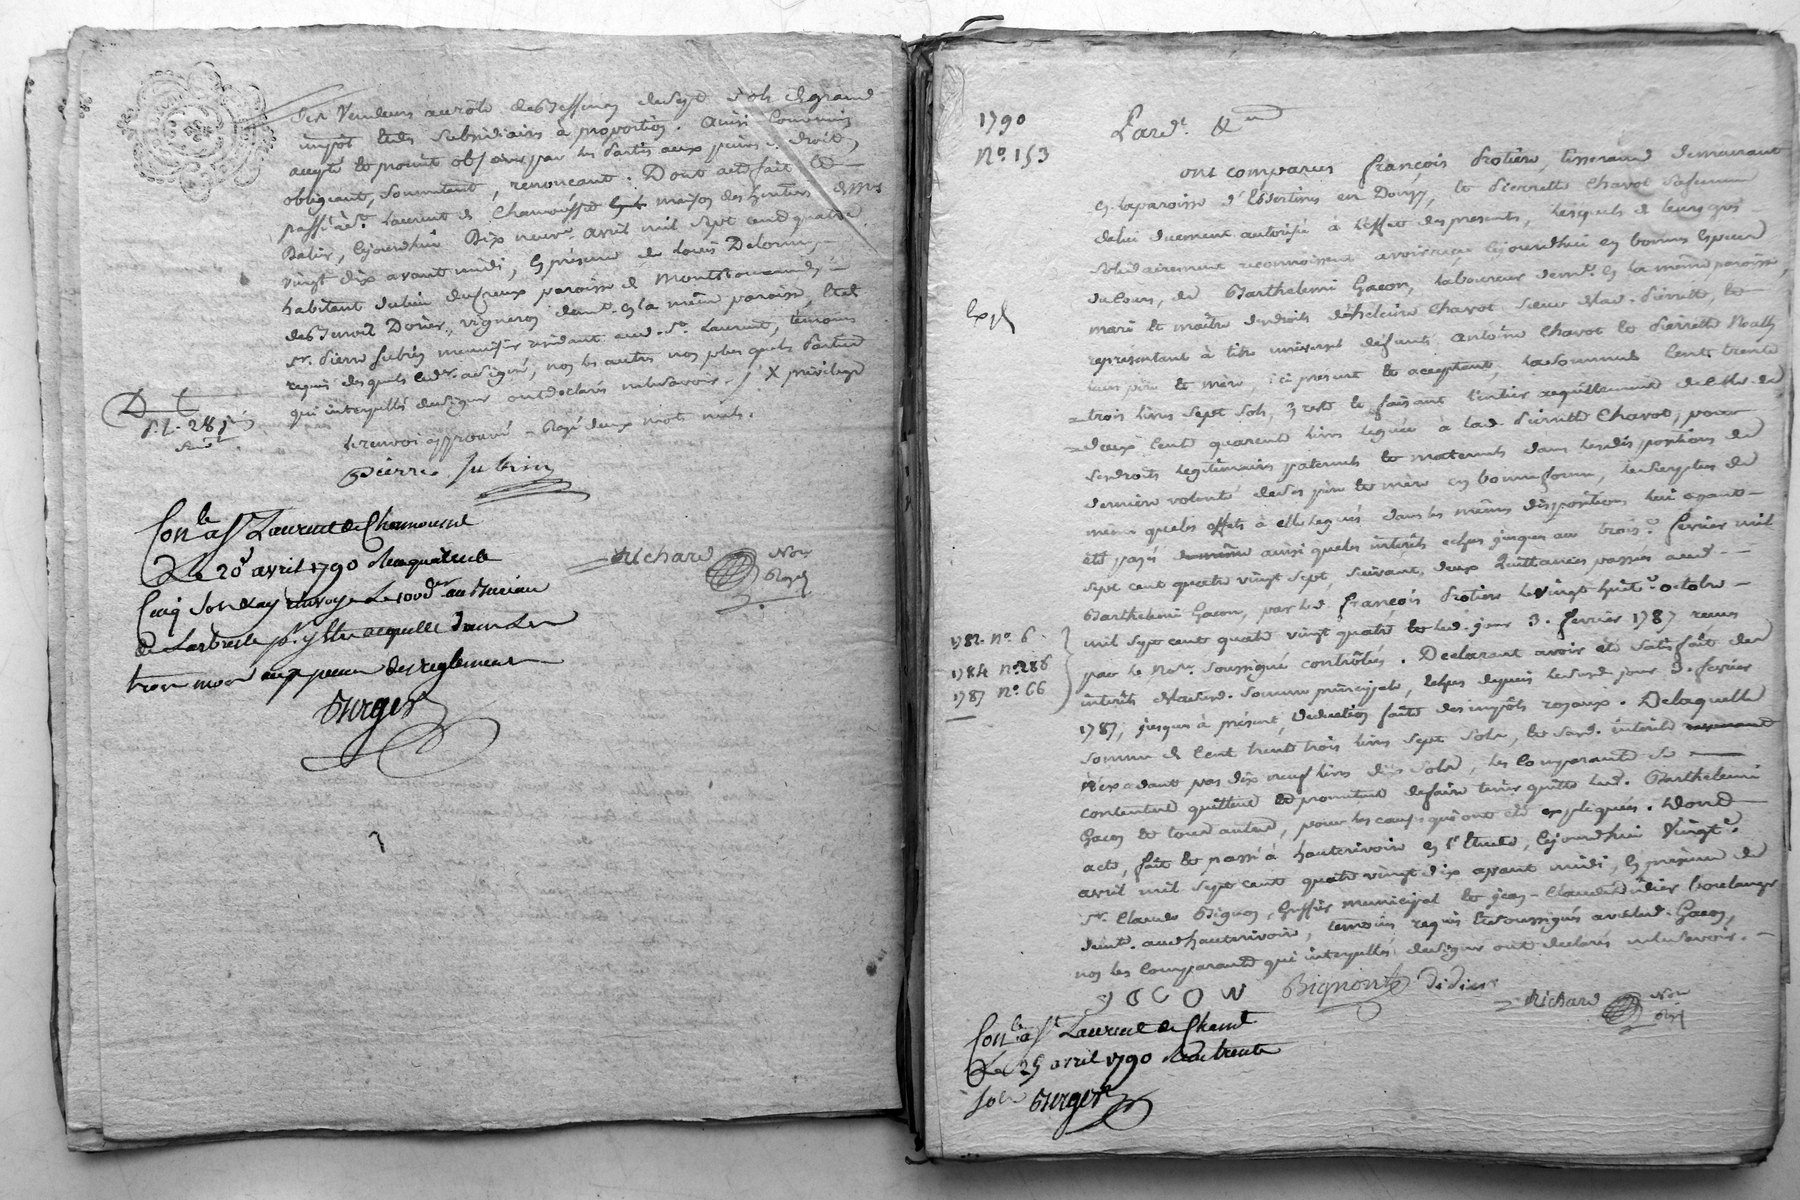 des Vendeurs au rôle de Bessenay de sept sols de grand
impôt et des subsidiaires à proportion. Ainsi convenu
accepté et promit observer par les parties aux peines de droit,
obligeant, soumettant, renonçant. Dont acte fait et
passé à St. Laurent de Chamousset maison des héritiers
Balir, cejourd'hui dix neuf avril mil sept cent quatre
vingt dix avant midi, en présence de Louis Delorme
habitant du lieu paroisse de Montromand, et
de Benoit Dorier, vigneron demt. en la même paroisse, et de
sr. Pierre Jubrin menuisier résidant aud. St. Laurent, témoins
requis desquels led. sr. a signé, non les autres non plus que les parties
qui interpellés de signer ont déclarés ne le savoir. X privilège
le renvoi approuvé - Rayé deux mots nuls.
D. t.
Pierre Jubrin
Conlé a St Laurent de Chamousset
Le 20 avril 1790 Reçu quatre
cinq sols envoyé Le 100d au Bureau
de Larbresle pr. y être acquitté dans les
trois mois aux peines des reglements
Burger
Richard Nore
Royal
1790
No. 153
Pardt. &
ont comparus françois Protiere, tisserand demeurant
en la paroisse d'Essertines en Donzy, et Pierrette Chavot sa femme
de lui duement autorisée à l'effet des presentes, lesquels de leurs gré
solidairement reconnoissent avoir reçu cejourd'hui en bonnes especes
du cours, de Barthelemi Gacon, laboureur demt. en la même paroisse,
mari et maître des droits d'heleine Chavot soeur de lad. Pierrette, et
representant à titre universel défunts Antoine Chavot et Pierrette
leurs père et mère, ici présent et acceptant, la somme de cent trente
trois livres sept sols, reste et faisant l'entier acquittement de celle de
deux cent quarente livres leguée à lad. Pierrette Chavot, pour
ses droits legitimaires paternels et maternels dans les dispositions de
derniere volonté de ses père et mère en bonne forme, le surplus de
même que les effets à elle legués dans les mêmes dispositions lui ayant
été payé ainsi que les intérêts echus jusques au trois fevrier mil
sept cent quatre vingt sept, suivant deux Quittances passées aud.
Barthelemi Gacon, par led. François Protiere le vingt huit octobre
mil sept cent quatre vingt quatre et led. jour 3. fevrier 1787 reçues
par le Nore. soussigné contrôlées. Declarant avoir été satisfait des
intérêts de lad. somme principale, echus depuis led. jour 3. fevrier
1787, jusques à présent, deduction faite des impôts royaux. De laquelle
somme de cent trente trois livres sept sols, et sesd. intérêts
n'excedant pas dix neuf livres dix sols, les comparants se
contentent quittent et promettent de faire tenir quitte led. Barthelemi
Gacon et tous autres, pour les causes qui ont été expliquées. Dont
acte, fait et passé à hauterivoire en l'Etude, cejourd'hui Vingt
avril mil sept cent quatre vingt dix avant midi, en présence de
sr. Claude Bignon, Greffier municipal et jean-Claude didier boulanger
demt. aud. hauterivoire, temoins requis et soussignés avec led. Gacon,
non les comparants qui interpellés de signer ont declarés ne le savoir.
1782. No. 6
1784 No. 286
1787 No. 66
GACON Bignon Didier
Richard Nore
Royal
Conlé a St Laurent de Chamt
Le 25 avril 1790 Reçu trente
sols Burger